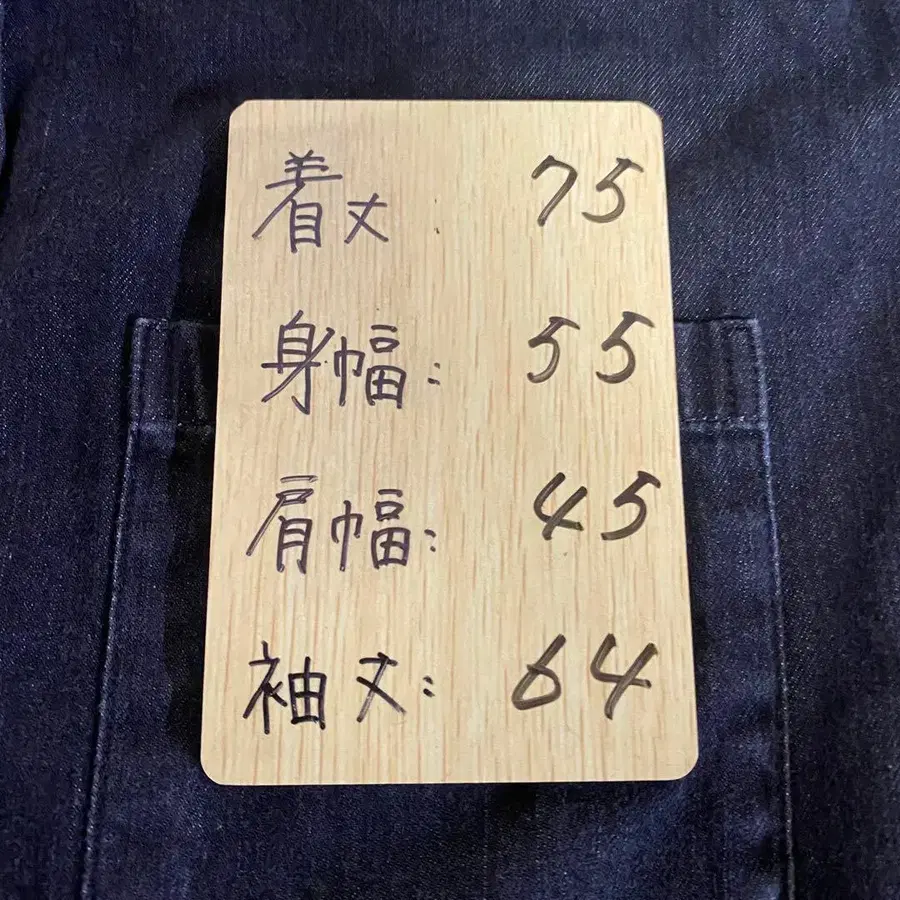 着丈 75
身幅: 55
肩幅: 45
袖丈: 64